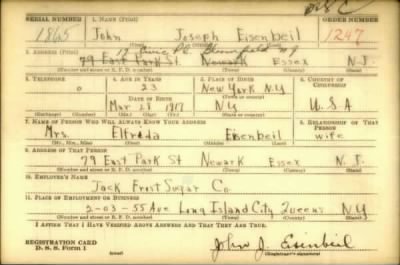 DSC
SERIAL NUMBER 1. NAME (Print) ORDER NUMBER
1865 John Joseph Eisenbeil 1247
(First) (Middle) (Last)
17 Pl. Bloomfield NJ
2. ADDRESS (Print)
79 East Park St. Newark Essex N.J.
(Number and street or R. F. D. number) (Town) (County) (State)
3. TELEPHONE 4. AGE IN YEARS 5. PLACE OF BIRTH 6. COUNTRY OF CITIZENSHIP
0 23 New York N.Y
DATE OF BIRTH (Town or county)
Mar 1917 N.Y U.S.A
(Exchange) (Number) (Mo.) (Day) (Yr.) (State or country)
7. NAME OF PERSON WHO WILL ALWAYS KNOW YOUR ADDRESS 8. RELATIONSHIP OF THAT PERSON
Mrs. Elfrida Eisenbeil wife
(Mr., Mrs., Miss) (First) (Middle) (Last)
9. ADDRESS OF THAT PERSON
79 East Park St Newark Essex N.J.
(Number and street or R. F. D. number) (Town) (County) (State)
10. EMPLOYER'S NAME
Jack Frost Sugar Co.
11. PLACE OF EMPLOYMENT OR BUSINESS
2-03-55 Ave Long Island City Queens N.Y
(Number and street or R. F. D. number) (Town) (County) (State)
I AFFIRM THAT I HAVE VERIFIED ABOVE ANSWERS AND THAT THEY ARE TRUE.
REGISTRATION CARD
D. S. S. Form 1 (over) John J. Eisenbeil
(Registrant's signature)